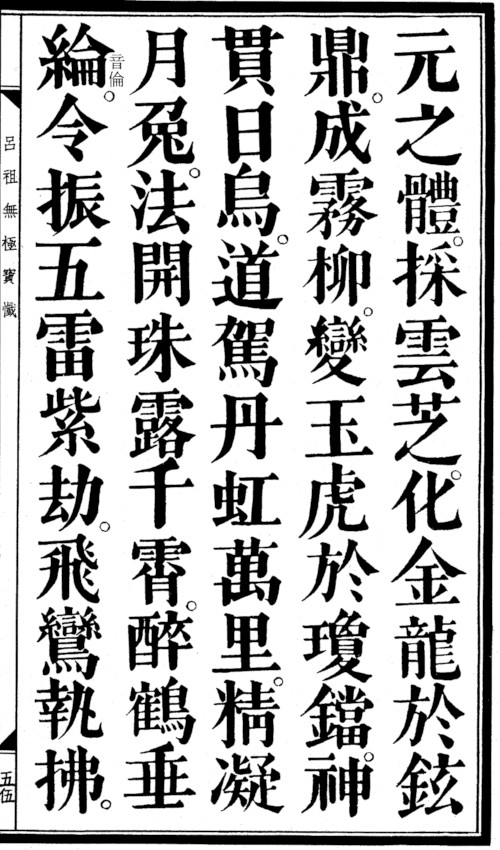 元之體。採雲芝。化金龍於鉉
鼎。成霧柳。變玉虎於瓊鐺。神
貫日烏。道駕丹虹萬里。精凝
月兔。法開珠露千霄。醉鶴垂
綸音倫。令振五雷紫劫。飛鸞執拂。
呂祖無極寶懺
五伍